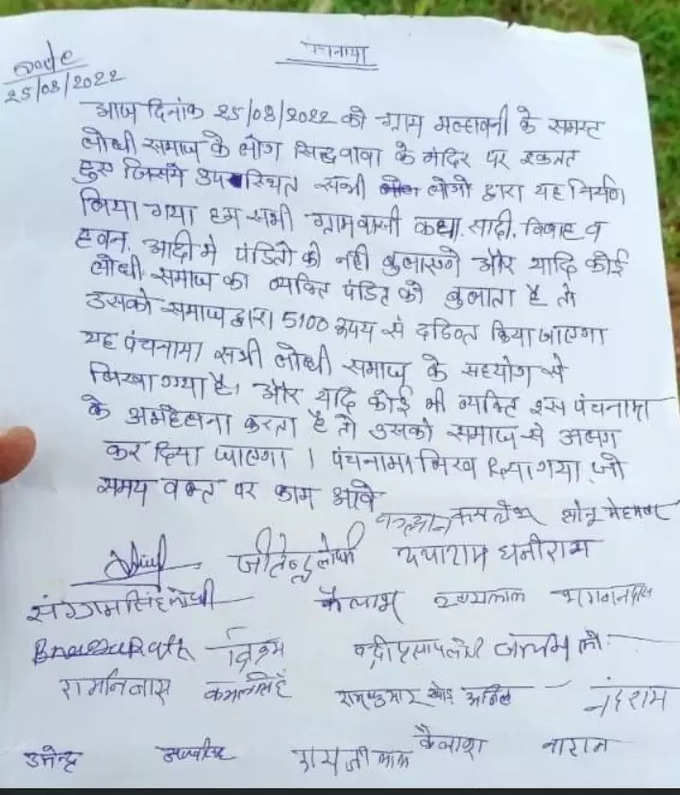 पंचनामा
Date
25/08/2022
आज दिनांक 25/08/2022 को ग्राम मल्हावनी के समस्त
लोधी समाज के लोग सिद्धवावा के मंदिर पर एकत्रत
हुए जिसमे उपस्थित सभी लोगो द्वारा यह निर्णय
लिया गया हम सभी ग्रामवासी कथा, सादी, विवाह व
हवन, आदी मे पंडितो को नही बुलाएगे और यादि कोई
लोधी समाज का व्यक्ति पंडित को बुलाता है तो
उसको समाज द्वारा 5100 रूपय से दंडित किया जाएगा
यह पंचनामा सभी लोधी समाज के सहयोग से
लिखा गया है। और यदि कोई भी व्यक्ति इस पंचनामा
के अव्हेलना करता है तो उसको समाज से अलग
कर दिया जाएगा । पंचनामा लिख दिया गया जो
समय वक्त पर काम आवे
कमलेश सोनू
जीतेन्द्र लोधी दयाराम धनीराम
संग्रामसिंह लोधी कैलाश भगवानदास
विक्रम
रामनिवास कमलसिंह रामकुमार अनिल नंदराम
कैलाश नारान